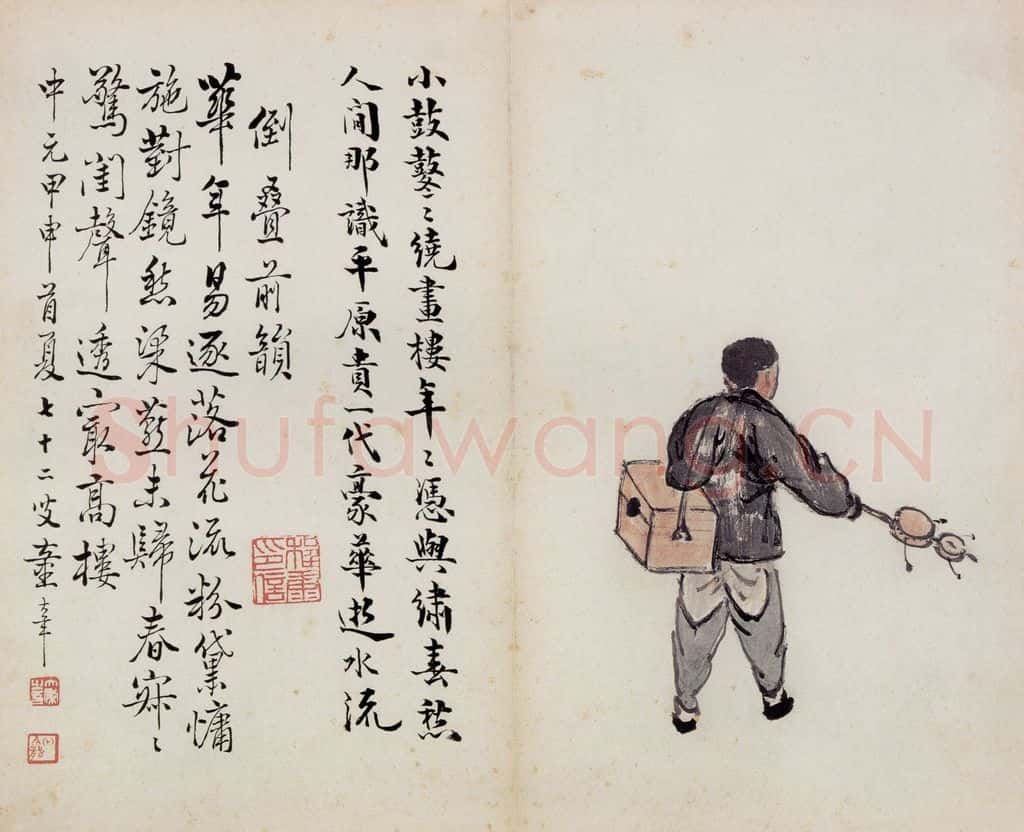 小鼓鼕〻繞畫樓年〻憑與繡春愁
人間那識平原貴一代豪華逝水流
倒疊前韻
華年易逐落花流粉黛慵
施對鏡愁梁燕未歸春寂〻
驚閨聲透最高樓
中元甲申首夏七十二叟
程康印信
Shufawang.CN